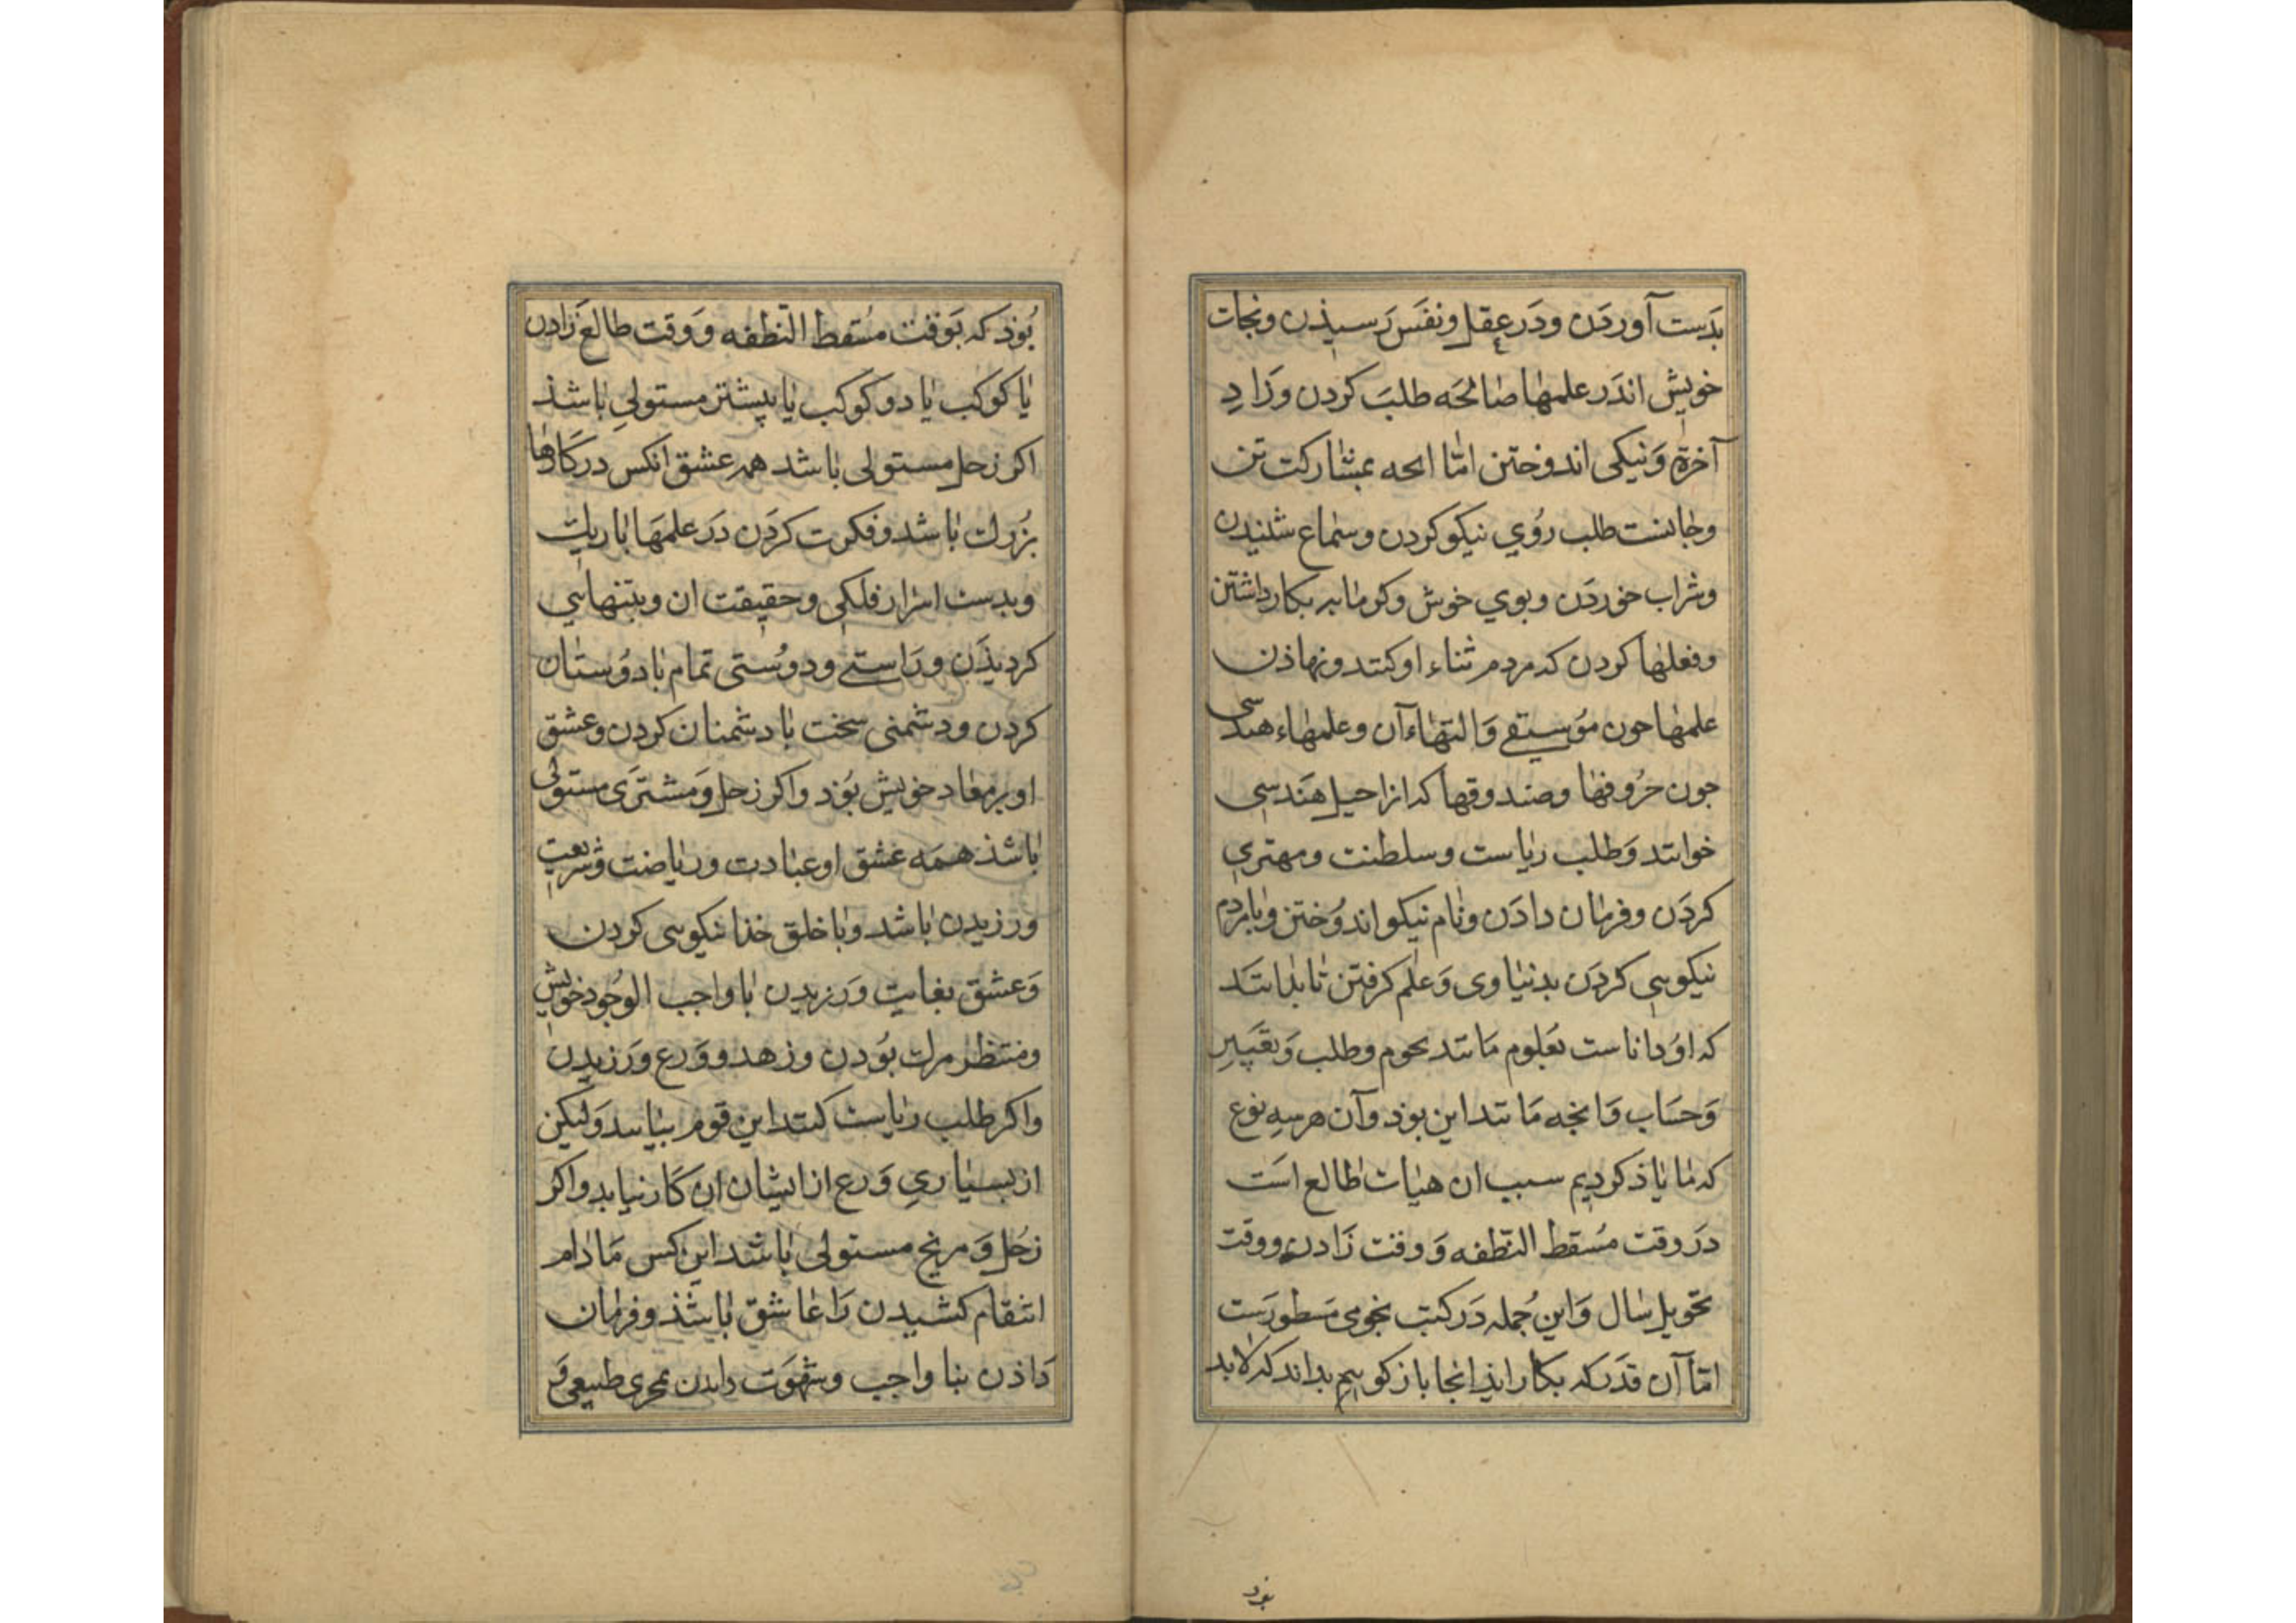 بَدست آوردَن ودَر عقل ونفَس رَسیذن ونجات
خویش اندَر علمها صالحَه طلبَ کردن وزَادِ
آخرة وَنیکی اندوختن امّا انحه بمشارکت تن
وجانست طلب رُوي نیکو کردن وسماع شنیدن
وشراب خوردَن وبوي خوش وکرمابه بکار داشتن
وفعلها کردن که مردم ثناء او کنند ونهاذن
علمها جون مُوسیقے وَالتهاء آن وعلمهاء هندسی
جون حرُوفها وصندوقها که ازا حیل هَندسِی
خوانند وَطلب ریاست وسلطنت ومهتري
کردَن وفرمان دادَن ونام نیکو اندوُختن وبا مردم
نیکویی کردَن بدنیاوی وَعلم کرفتن تا بدانند
که اوُ داناست بعلوم مَانند نجوم وطلب وَتعَبیرِ
وَحسَاب وَانجه مَانند این بوذ وآن هر سه نوع
که ما یاذ کردیم سبب ان هیات طالع است
دَر وقت مُسقط النّطفه وَوقت زَادن ووقت
تحویل سال وَاین جُمله دَر کتب نجومی مَسطورَست
امّا آن قدَر که بکار ایذ انجا باز کوییم بداند که لابد
بوذ
بُوذ که بَوقت مُسقط النّطفه وَوقت طالع زَادن
یا کوکب یا دو کوکب یا بیشتر مستولیِ باشذ
اکر زحل مستولی باشد همه عشق انکس در کارها
بزُرك باشد وفکرت کردَن دَر علمهَا باریك
وبدست اسرار فلکی وحقیقت ان وبتنهایی
کردیذَن ورَاستے ودوسُتی تمام با دوُستان
کردن ودشمنی سخت با دشمنان کردن وعشق
او بر معاد خویش بُوَد واکر زحل وَمشترَی مستولی
باشذ همَه عشق او عبادت وریاضت وشریعت
ورزیدن باشد وبا خلق خذا نیکویی کردن
وَعشق بغایت وَرزیدن با واجب الوجُود خویش
ومنتظر مرك بوُدن وزهد ووَرع وَرزیدن
واکر طلب ریاست کنند این قوم بیابند وَلیکن
از بسیاريِ وَرع از ایشان ان کَار نیاید واکر
زحُل وَمریخ مستولی باشد این کس مَادام
انتقام کشیدن رَا عَاشق باشذ وفرمان
دَاذن بنا واجب وشهوَت راندن بمجری طبیعی وَ